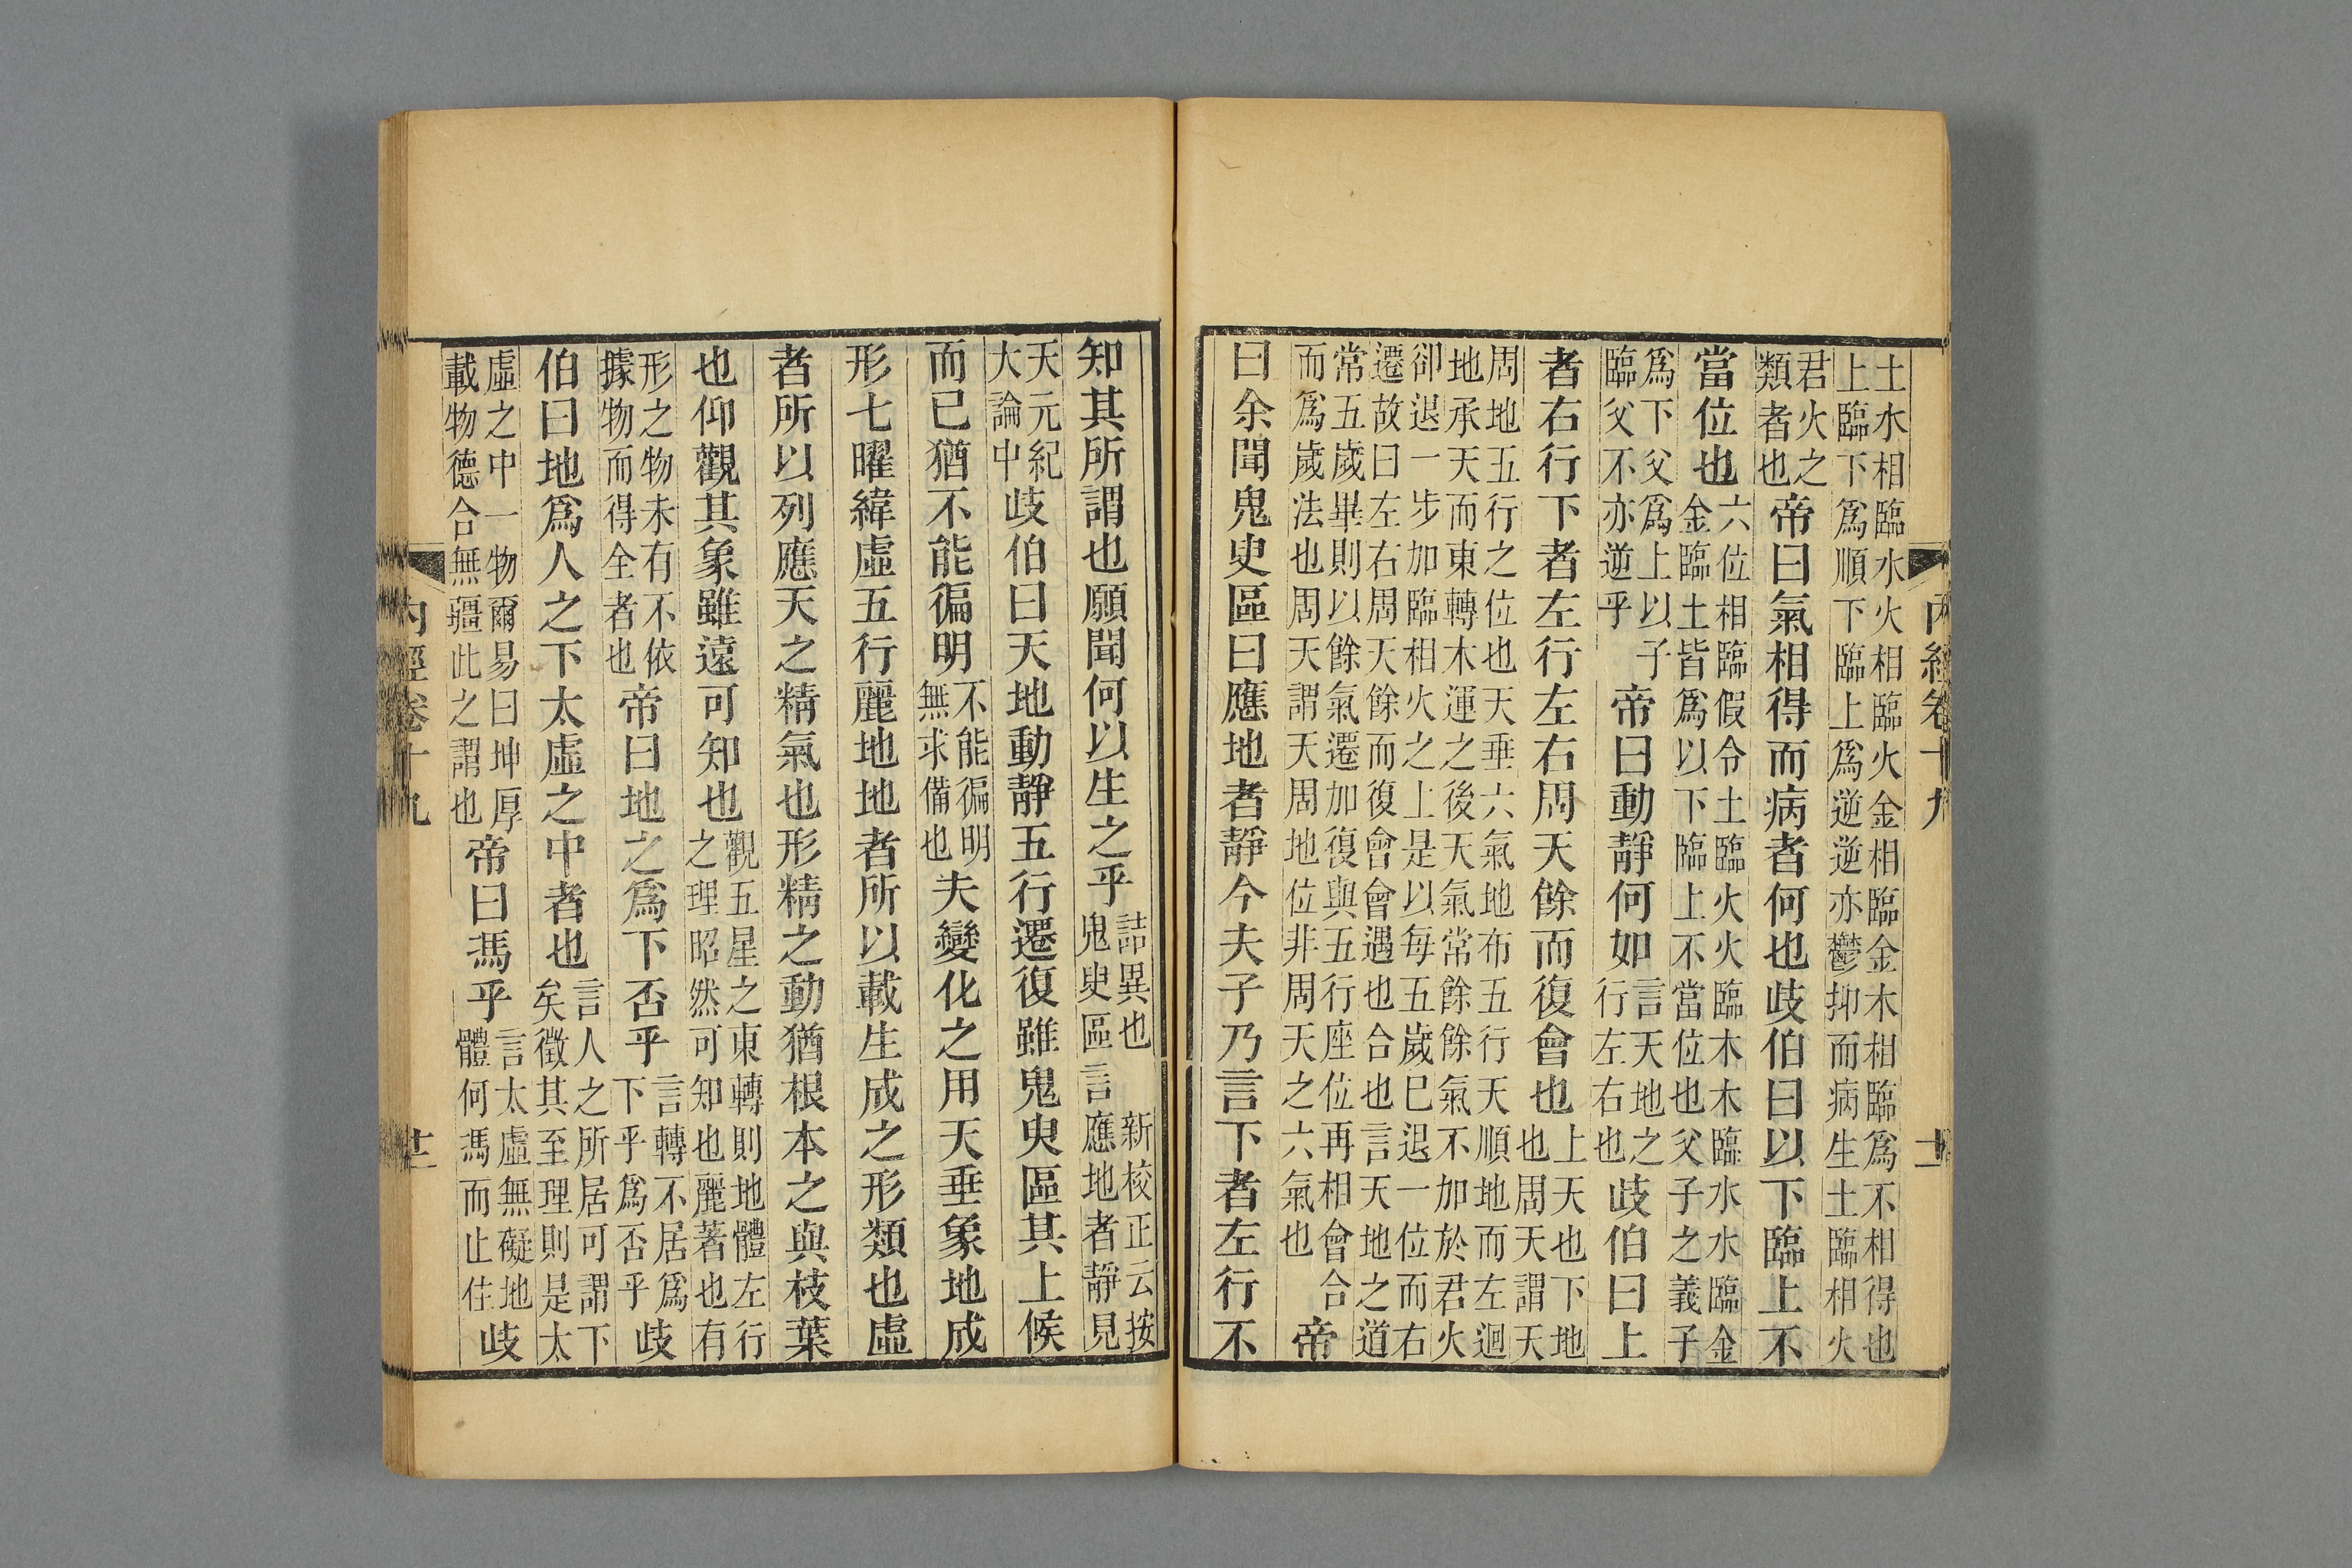 內經卷十九
土水相臨水火相臨火金相臨金木相臨爲不相得也
上臨下爲順下臨上爲逆逆亦鬱抑而病生土臨相火
君火之類者也帝曰氣相得而病者何也歧伯曰以下臨上不
當位也六位相臨假令土臨火火臨木木臨水水臨金金臨土皆爲以下臨上不當位也父子之義子
爲下父爲上以子臨父不亦逆乎帝曰動靜何如言天地之行左右也歧伯曰上
者右行下者左行左右周天餘而復會也上天也下地也周天謂天
周地五行之位也天垂六氣地布五行天順地而左迴
地承天而東轉木運之後天氣常餘餘氣不加於君火
卻退一步加臨相火之上是以每五歲已退一位而右
遷故曰左右周天餘而復會會遇也合也言天地之道
常五歲畢則以餘氣遷加復與五行座位再相會合而爲歲法也周天謂天周地位非周天之六氣也帝
曰余聞鬼臾區曰應地者靜今夫子乃言下者左行不
知其所謂也願聞何以生之乎詰異也 新校正云按鬼臾區言應地者靜見
天元紀大論中歧伯曰天地動靜五行遷復雖鬼臾區其上候
而已猶不能徧明不能徧明無求備也夫變化之用天垂象地成
形七曜緯虛五行麗地地者所以載生成之形類也虛
者所以列應天之精氣也形精之動猶根本之與枝葉
也仰觀其象雖遠可知也觀五星之東轉則地體左行之理昭然可知也麗著也有
形之物未有不依據物而得全者也帝曰地之爲下否乎言轉不居爲下乎爲否乎歧
伯曰地爲人之下太虛之中者也言人之所居可謂下矣徵其至理則是太
虛之中一物爾易曰坤厚載物德合無疆此之謂也帝曰馮乎言太虛無礙地體何馮而止住歧
內經卷十九